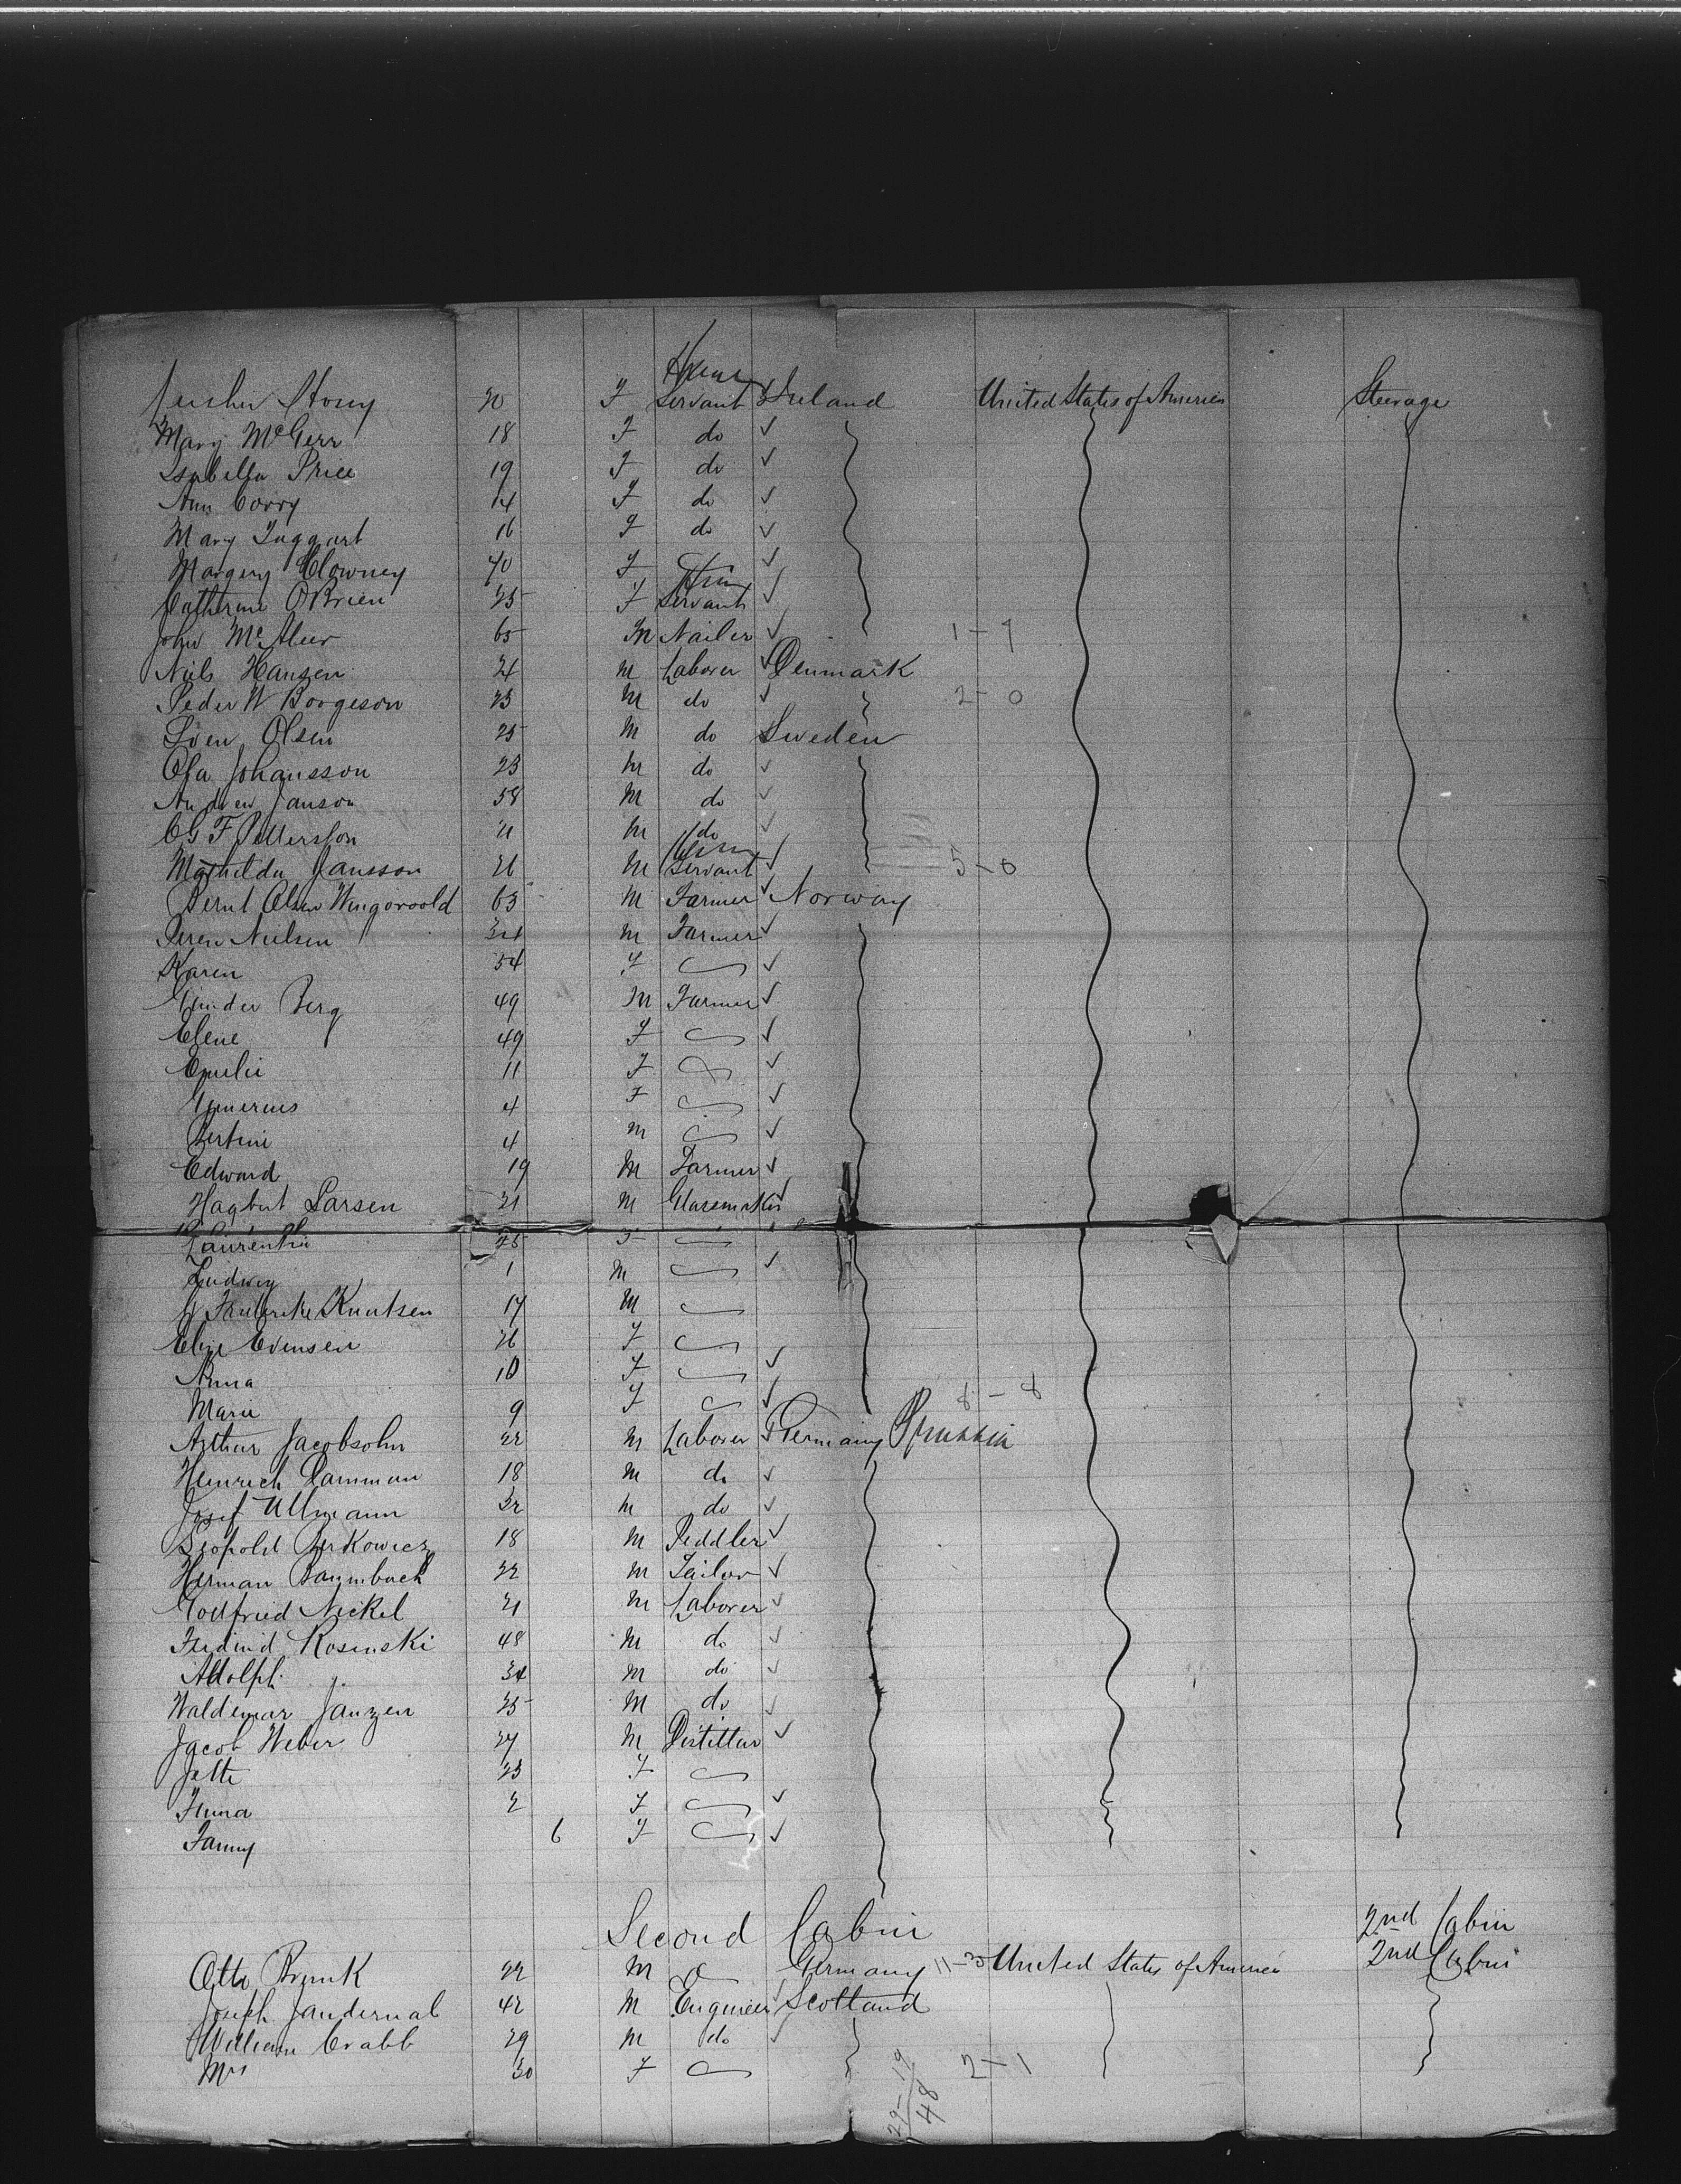 Story 20 F Servant Ireland United States of America Steerage
Mary McGerr 18 F do
Isabella Price 19 F do
Ann Corry 14 F do
Mary Taggart 16 F do
Margery Clowney 40 F
Catherine O'Brien 25 F Servant
John McAleer 65 M Nailer 1-7
Niels Hansen 24 M Laborer Denmark
Peder W Borgeson 23 M do 2-0
Sven Olsen 25 M do Sweden
Ola Johansson 23 M do
Andrew Janson 58 M do
CG F Pettersson 21 M do
Mathilda Jansson 26 M Servant 5-0
Bernt Olsen 63 M Farmer Norway
Nielsen M Farmer
Karen 54 F
Gunder Berg 49 M Farmer
Elene 49 F
Emilie 11 F
4 F
Bertini 4 M
Edward 19 M Farmer
Hagbert Larsen 21 M
Laurentia 25 F
Ludwig 1 M
Knutsen 17 M
Evensen 26 F
Anna 10 F
Marie 9 F 8-8
Arthur Jacobsohn 22 M Laborer Germany Prussia
Heinrich Damman 18 M do
Josef Ullmann 32 M do
Leopold 18 M Peddler
Herman Baumbach 22 M Tailor
Gottfried Nickel 21 M Laborer
Ferdind Rosinski 48 M do
Adolph 34 M do
Waldemar Janzen 25 M do
Jacob Weber 27 M Distiller
Jette 23 F
2 F
Fanny 6 F
Second Cabin 2nd Cabin
Otto Brunk 22 M Germany 11-3 United States of America 2nd Cabin
Joseph 42 M Engineer Scotland
William Crabb 29 M do
Mrs 30 F 2-1
29-19
48